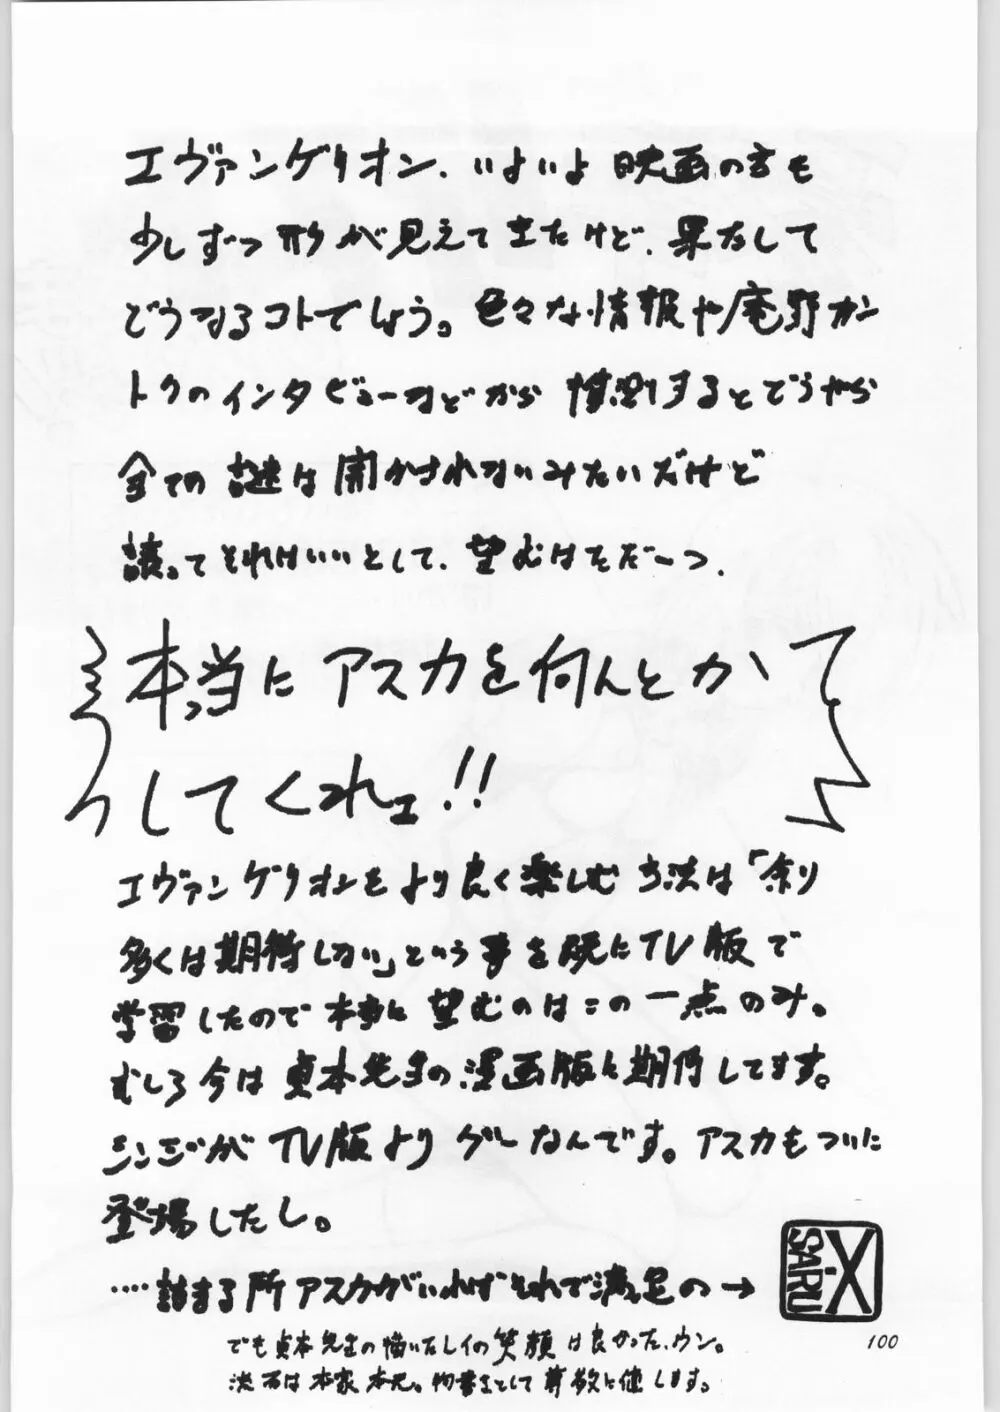 エヴァンゲリオン、いよいよ映画の方も
少しずつ形が見えてきたけど、果たして
どうなるコトでしょう。色々な情報や庵野カン
トクのインタビューなどから推測するとどうやら
全ての謎は開かされないみたいだけど
譲ってそれはいいとして、望むはそだーっ、
本当に アスカを何んとか
してくれェ!!
エヴァンゲリオンをより良く楽しむ方法は「余り
多くは期待しない」という事を既にTV版で
学習したので本当に望むのはこの一点のみ。
むしろ今は貞本先生の漫画版に期待してます。
シンジがTV版よりグーなんです。アスカもついに
登場したし。
‥‥詰まる所アスカがいればそれで満足の→
X-SARU
でも貞本先生の描いたレイの笑顔は良かった、ウン。
流石は本家本元。物書きとして尊敬に値します。
100